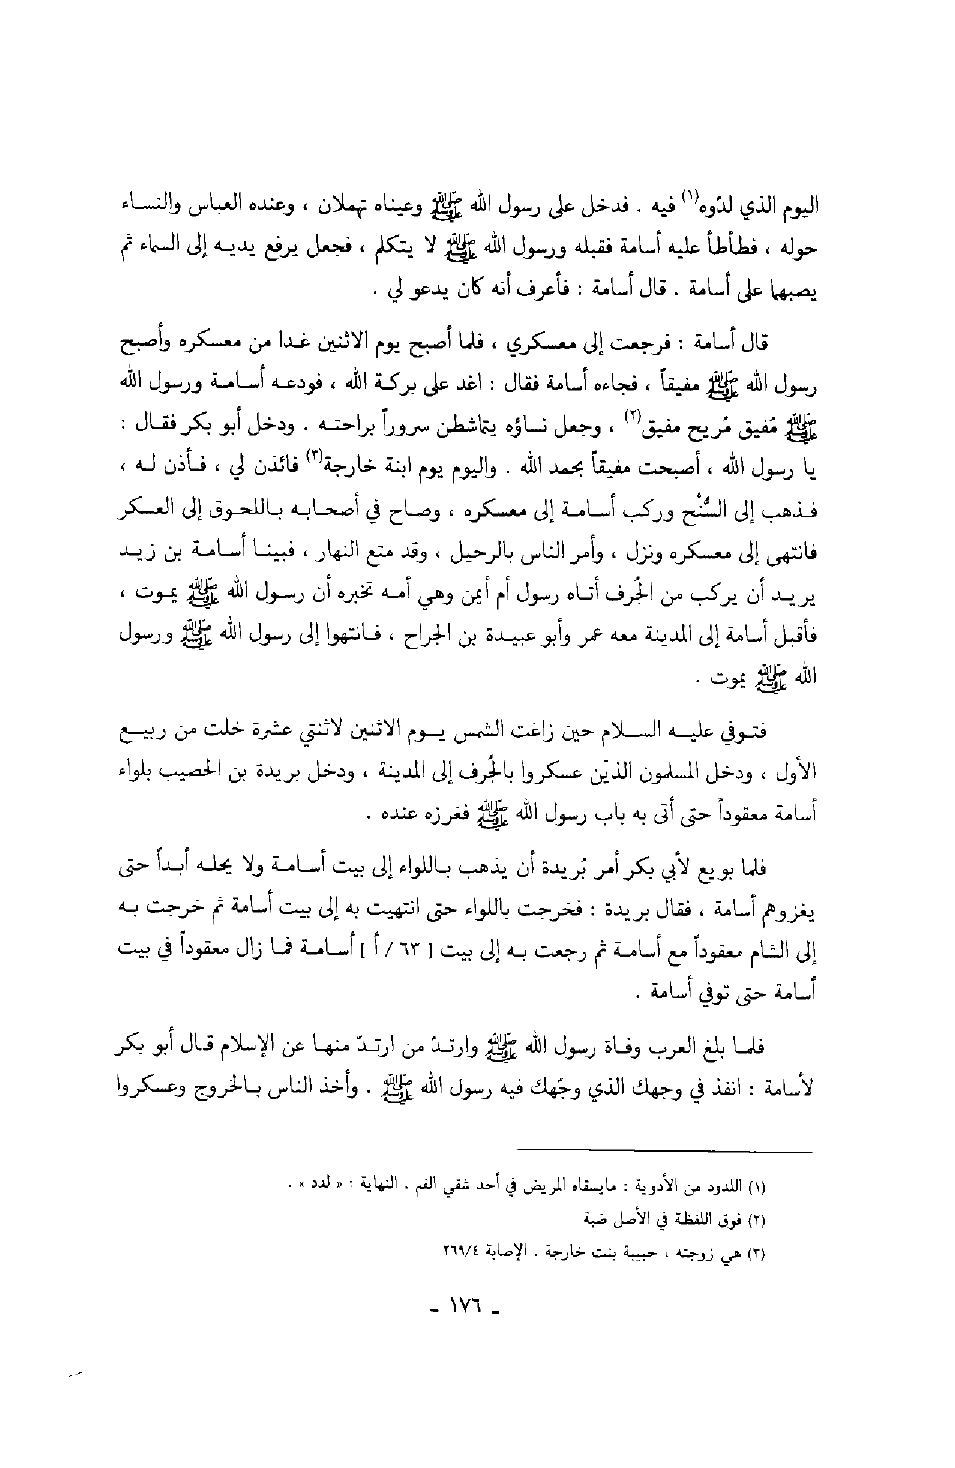 اليوم الذي لدّوه(١) فيه . فدخل على رسول الله ﷺ وعيناه تهملان ، وعنده العباس والنساء
حوله ، فطأطأ عليه أسامة فقبله ورسول الله ﷺ لا يتكلم ، فجعل يرفع يديه إلى السماء ثم
يصبها على أسامة . قال أسامة : فأعرف أنه كان يدعو لي .
قال أسامة : فرجعت إلى معسكري ، فلما أصبح يوم الاثنين غدا من معسكره وأصبح
رسول الله ﷺ مفيقاً ، فجاءه أسامة فقال : اغد على بركة الله ، فودعه أسامة ورسول الله
ﷺ مُفيق مُريح مفيق(٢) ، وجعل نساؤه يتماشطن سروراً براحته . ودخل أبو بكر فقال :
يا رسول الله ، أصبحت مفيقاً بحمد الله . واليوم يوم ابنة خارجة(٣) فائذن لي ، فأذن له ،
فذهب إلى السُّنْح وركب أسامة إلى معسكره ، وصاح في أصحابه باللحوق إلى العسكر
فانتهى إلى معسكره ونزل ، وأمر الناس بالرحيل ، وقد متع النهار ، فبينا أسامة بن زيد
يريد أن يركب من الجُرف أتاه رسول أم أيمن وهي أمه تخبره أن رسول الله ﷺ يموت ،
فأقبل أسامة إلى المدينة معه عمر وأبو عبيدة بن الجراح ، فانتهوا إلى رسول الله ﷺ ورسول
الله ﷺ يموت .
فتوفي عليه السلام حين زاغت الشمس يوم الاثنين لاثنتي عشرة خلت من ربيع
الأول ، ودخل المسلمون الذين عسكروا بالجُرف إلى المدينة ، ودخل بريدة بن الحصيب بلواء
أسامة معقوداً حتى أتى به باب رسول الله ﷺ فغرزه عنده .
فلما بويع لأبي بكر أمر بُريدة أن يذهب باللواء إلى بيت أسامة ولا يحله أبداً حتى
يغزوهم أسامة ، فقال بريدة : فخرجت باللواء حتى انتهيت به إلى بيت أسامة ثم خرجت به
إلى الشام معقوداً مع أسامة ثم رجعت به إلى بيت [ ٦٣ / أ ] أسامة فما زال معقوداً في بيت
أسامة حتى توفي أسامة .
فلما بلغ العرب وفاة رسول الله ﷺ وارتدّ من ارتدّ منها عن الإسلام قال أبو بكر
لأسامة : انفذ في وجهك الذي وجّهك فيه رسول الله ﷺ . وأخذ الناس بالخروج وعسكروا
(١) اللدود من الأدوية : مايسقاه المريض في أحد شقي الفم . النهاية : « لدد » .
(٢) فوق اللفظة في الأصل ضبة
(٣) هي زوجته ، حبيبة بنت خارجة . الإصابة ٢٦٩/٤
ـ ١٧٦ ـ